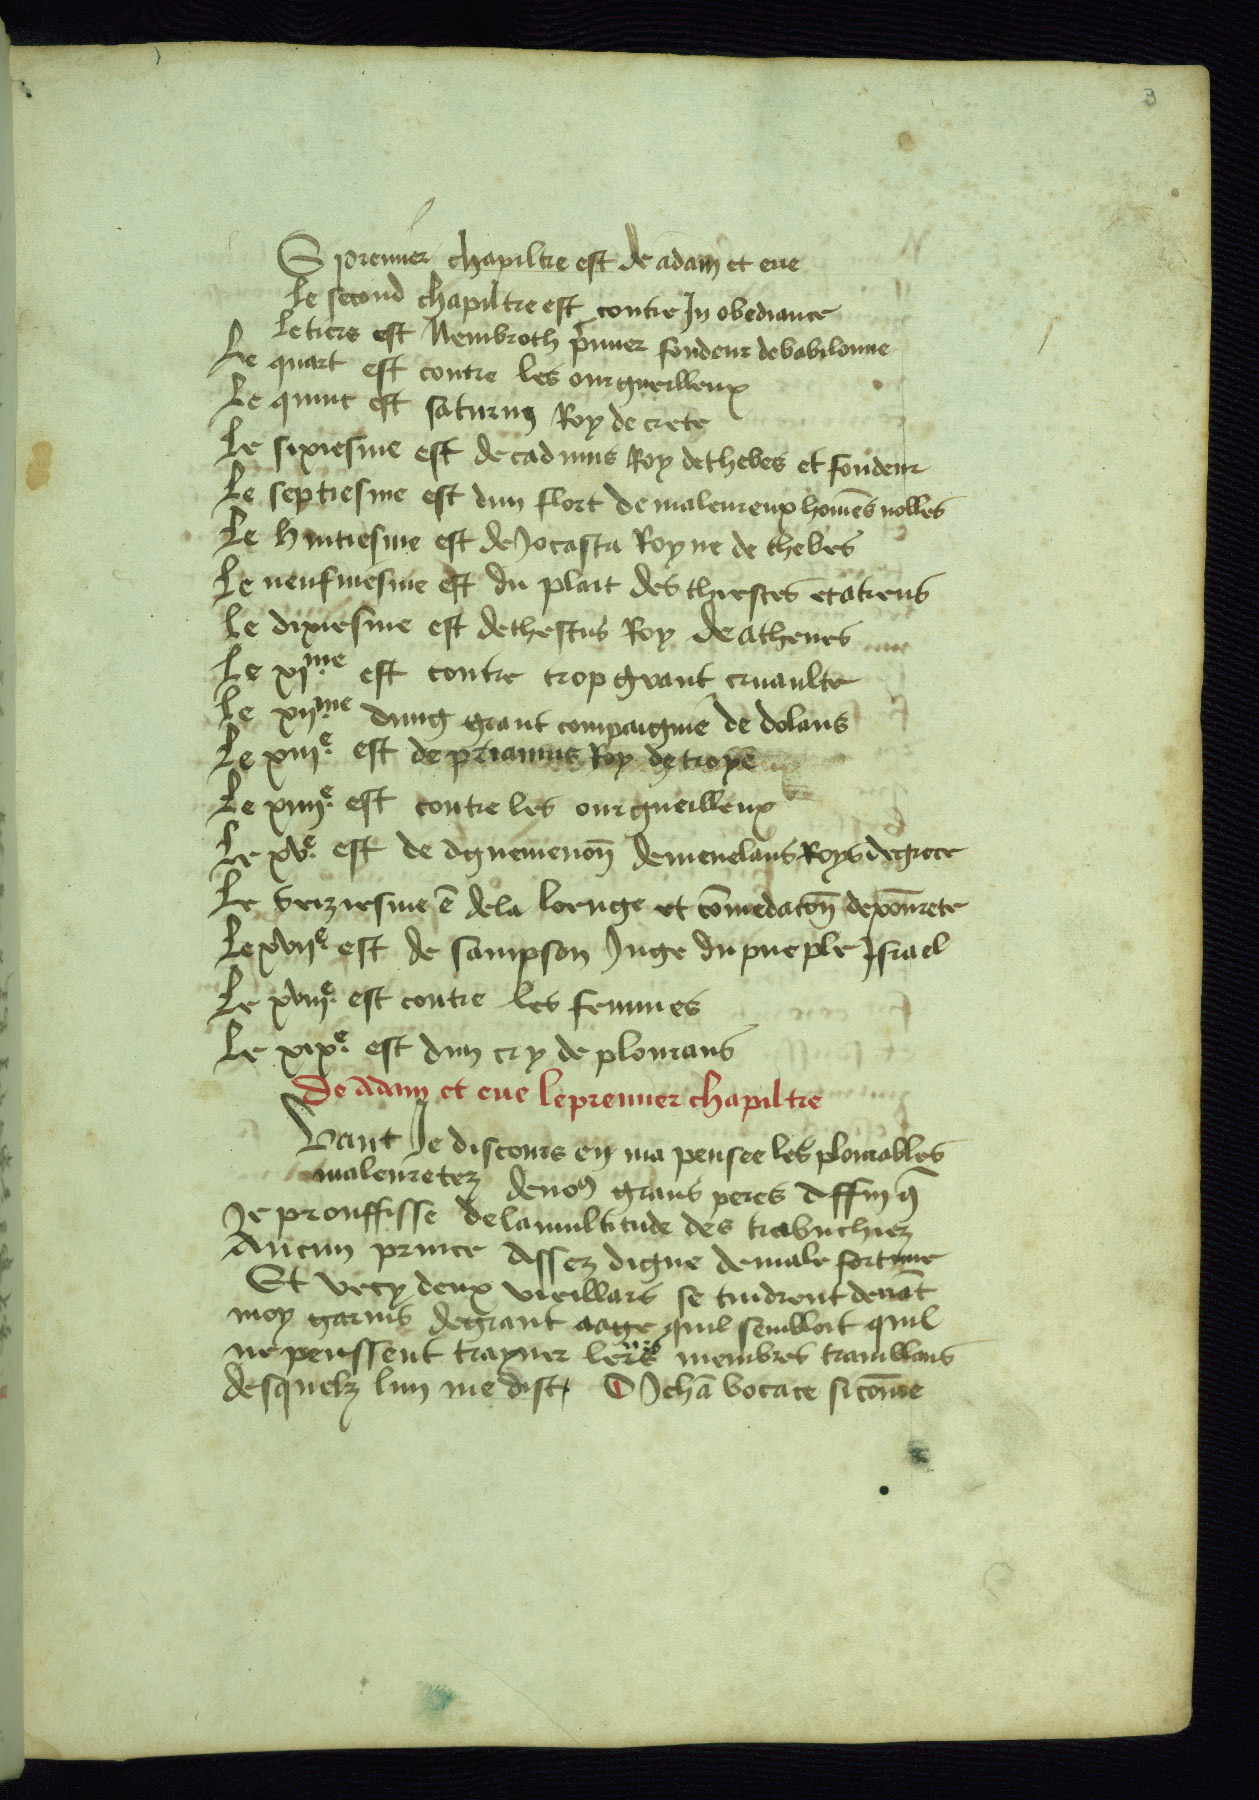 3
S premier chapiltre est de adam et eue
Le second chapiltre est contre In obediance
Le tiers est Nembroth p̃mier fondeur de babilonne
Le quart est contre les ourgueilleux
Le quint est saturnꝯ Roy de crete
Le sixiesme est de cadmus Roy de thebes et fondeur
Le septiesme est dun flort de maleureux hom̃es nobles
Le huitiesme est de Jocasta Royne de thebes
Le neufmesme est du plait des thiestes et atreus
Le dixiesme est de theseus Roy de athenes
Le xi.me est contre trop grant cruaulte
Le xii.me dung grant compaignie de dolans
Le xiii.e est de priamus Roy de troye
Le xiiii.e est contre les ourgueilleux
Le xv.e est de agnemenon̄ de menelaus Roys de grece
Le seziesme ē de la loenge et cōmedatoñ de pourete
Le xvii.e est de sampson Juge du pueple Israel
Le xviii.e est contre les femmes
Le xix.e est dun cry de plourans
De Adam et eue le premier chapiltre
Vant Je discours en ma pensee les plourables
maleuretez de noꝰ grans peres Affin q̃
Je prouffisse de la multitude des trabuchiez
Aucun prince Assez digne de male fortune
Et vecy deux vieillars se tindrent deuāt
moy garnis de grant aage quil sembloit quil
ne peussent trayner leurs membres tramblans
desquelz lun me dist Jehā bocace si cōme